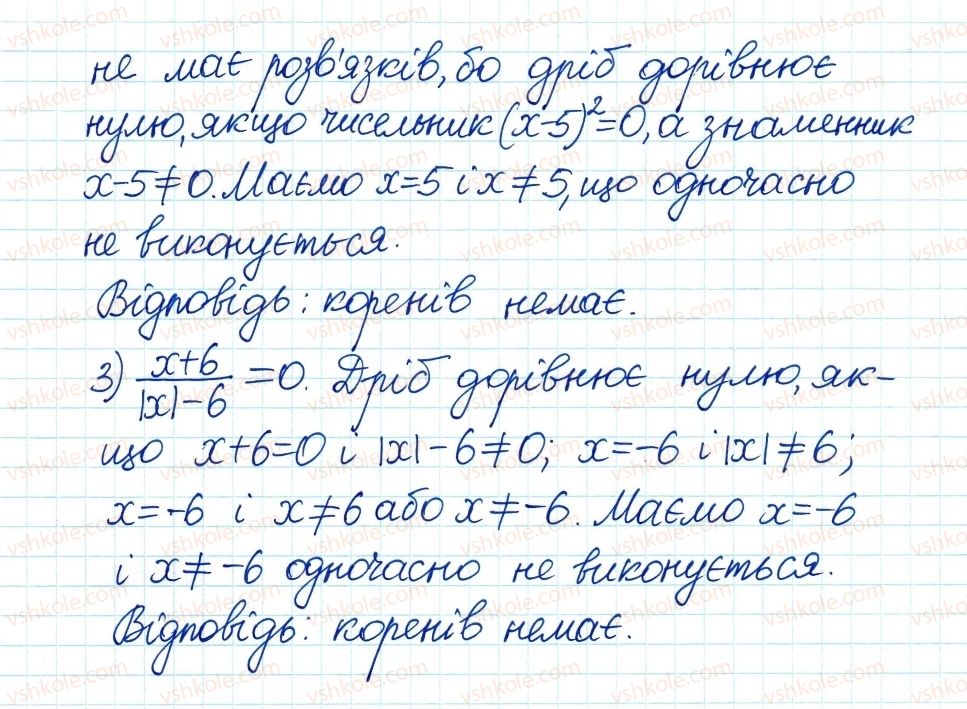 не має розв'язків, бо дріб дорівнює
нулю, якщо чисельник (x-5)²=0, а знаменник
x-5≠0. Маємо x=5 і x≠5, що одночасно
не виконується.
Відповідь: коренів немає.
3) (x+6)/(|x|-6) =0. Дріб дорівнює нулю, як-
що x+6=0 і |x|-6≠0; x=-6 і |x|≠6;
x=-6 і x≠6 або x≠-6. Маємо x=-6
і x≠-6 одночасно не виконується.
Відповідь: коренів немає.